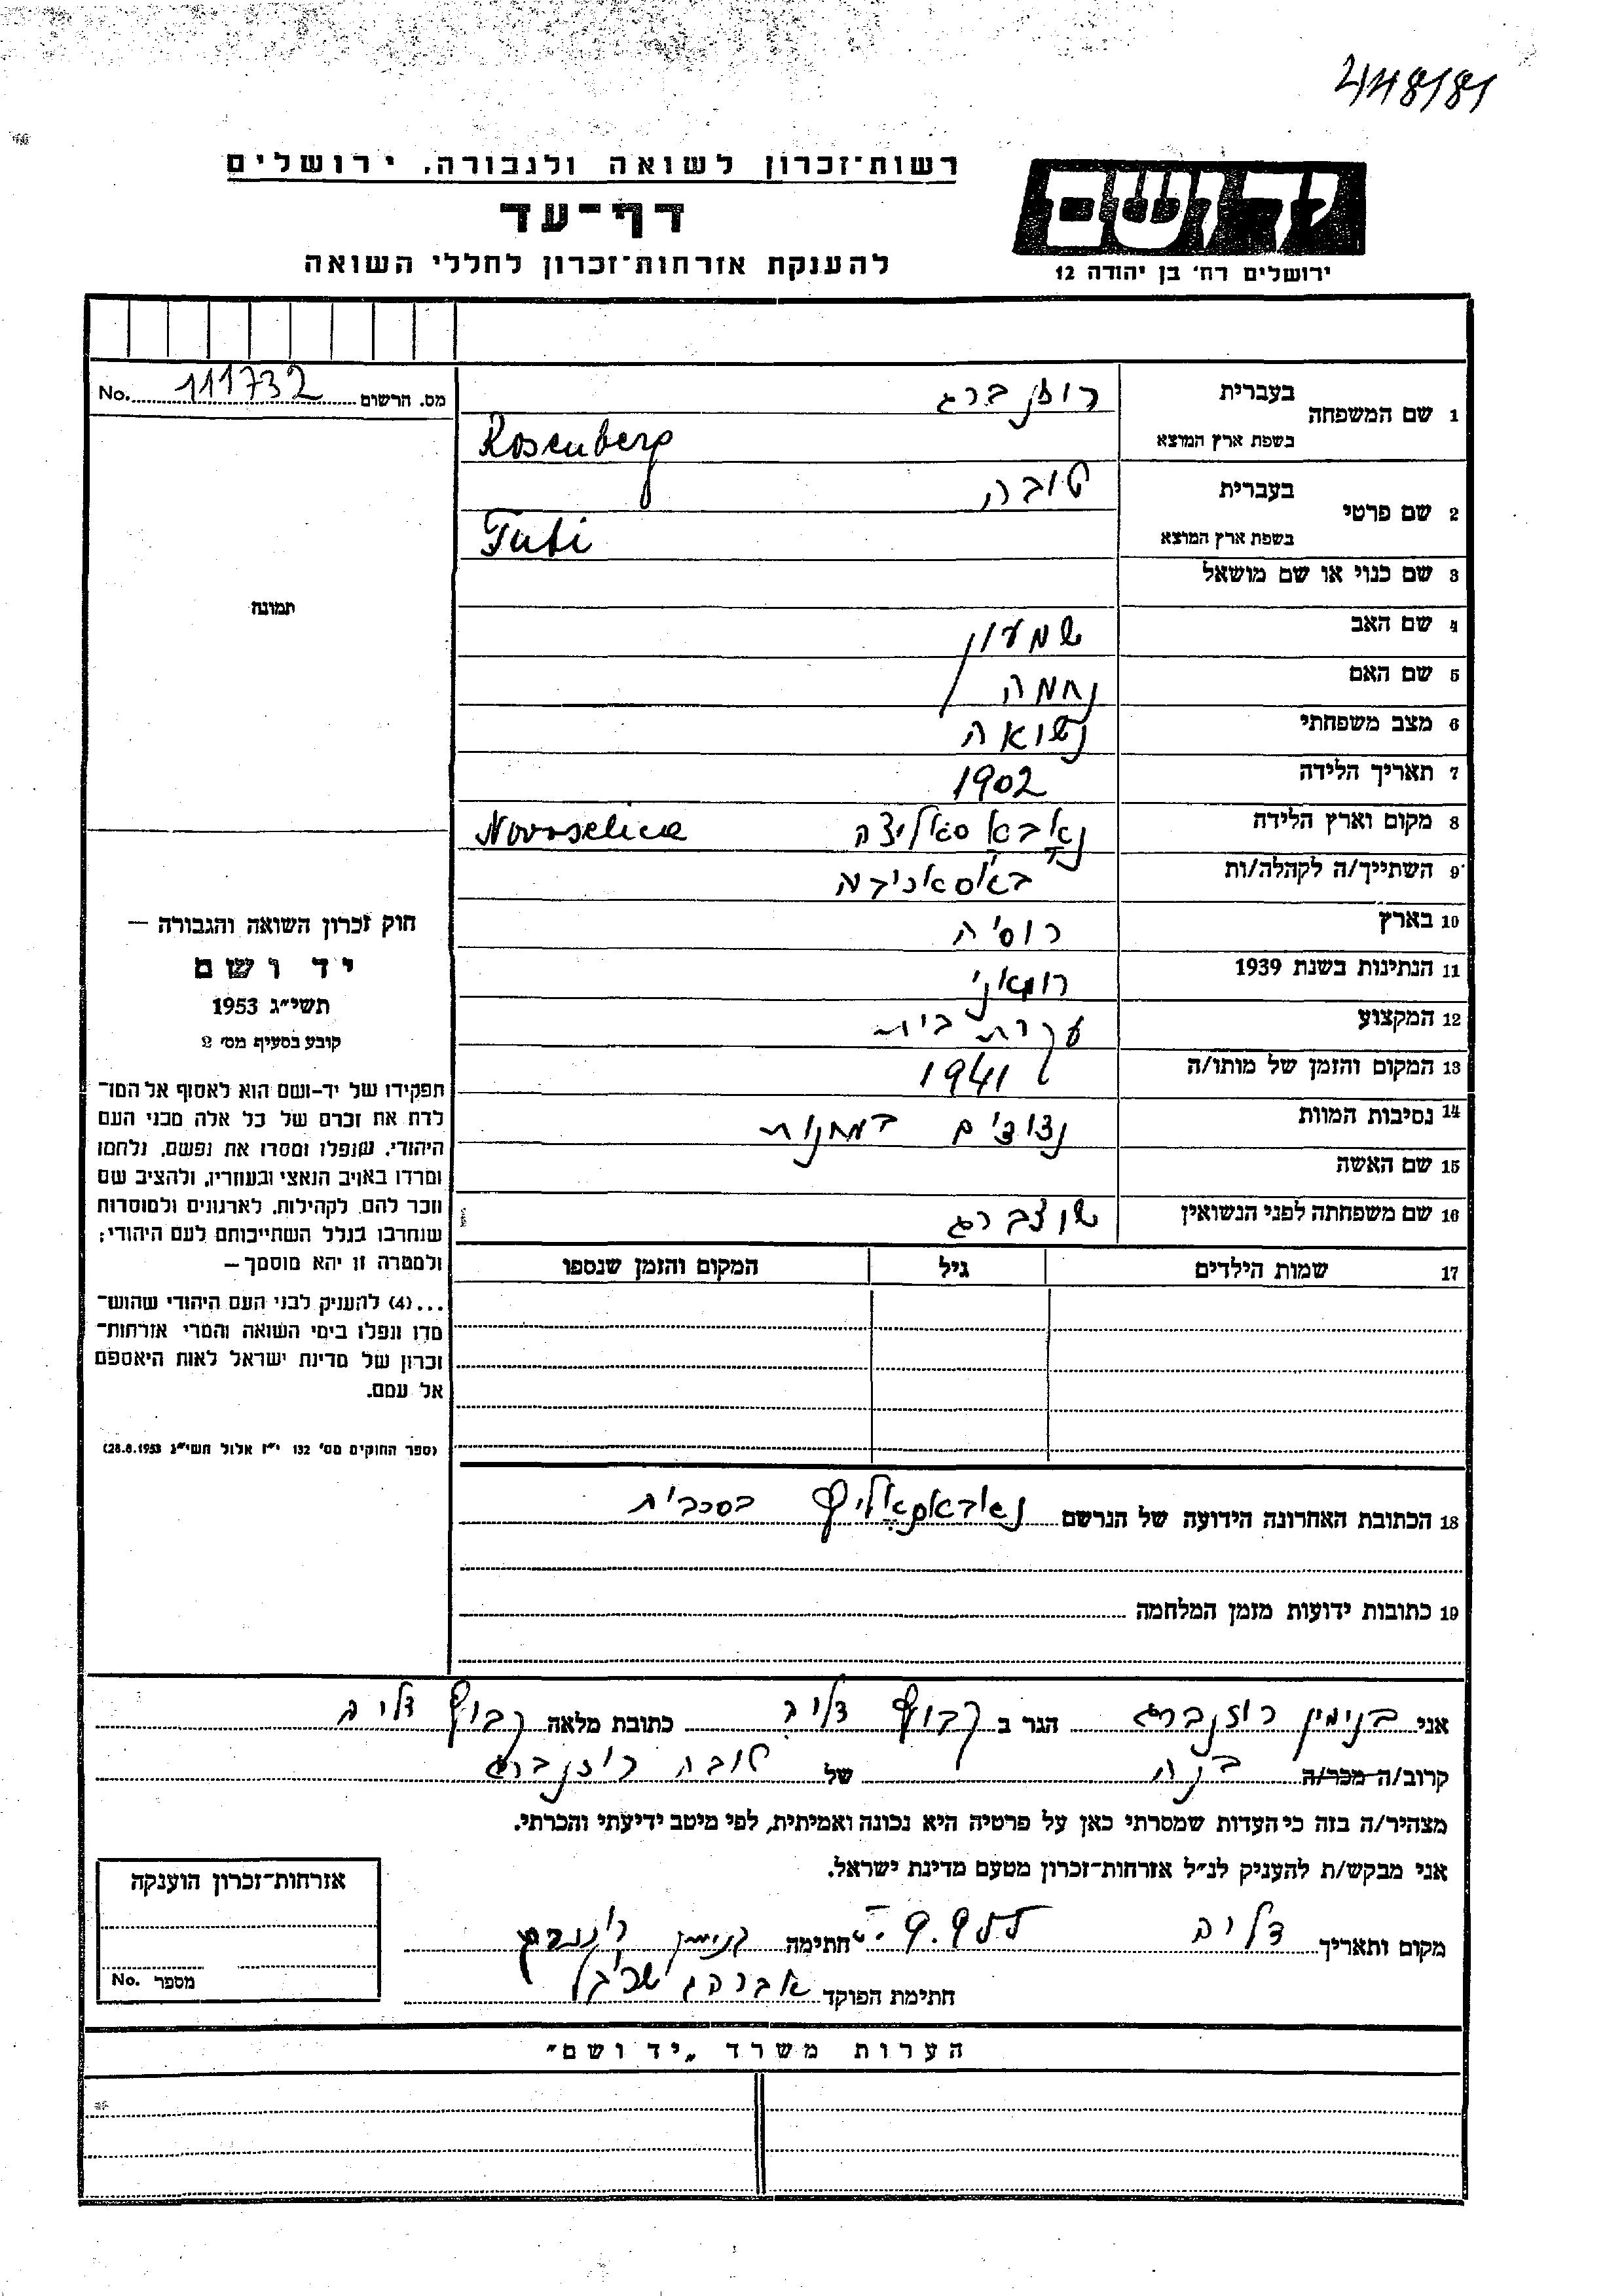 448/81
רשות־זכרון לשואה ולגבורה, ירושלים
דף־עד
להענקת אזרחות־זכרון לחללי השואה
יד ושם
ירושלים רח' בן יהודה 12
מס. הרשום 111732 No.
1 שם המשפחה בעברית רוזן ברג
בשפת ארץ המוצא Rosenberg
2 שם פרטי בעברית טובה
בשפת ארץ המוצא Tubi
3 שם כנוי או שם מושאל
4 שם האב שמעון
5 שם האם נחמה
6 מצב משפחתי נשואה
7 תאריך הלידה 1902
8 מקום וארץ הלידה נאבא סאליצה Novoselica
9 השתייך/ה לקהלה/ות
10 בארץ רוסיה
11 הנתינות בשנת 1939 רומאני
12 המקצוע עקרת בית
13 המקום והזמן של מותו/ה 1941
14 נסיבות המוות במחנות
15 שם האשה
16 שם משפחתה לפני הנשואין
17 שמות הילדים גיל המקום והזמן שנספו
תמונה
חוק זכרון השואה והגבורה —
יד ושם
תשי״ג 1953
קובע בסעיף מס' 2
תפקידו של יד-ושם הוא לאסוף אל המו־
לדת את זכרם של כל אלה מבני העם
היהודי, שנפלו ומסרו את נפשם, נלחמו
ומרדו באויב הנאצי ובעוזריו, ולהציב שם
וזכר להם, לקהילות, לארגונים ולמוסדות
שנחרבו בגלל השתייכותם לעם היהודי;
ולמטרה זו יהא מוסמך —
...(4) להעניק לבני העם היהודי שהוש־
מדו ונפלו בימי השואה והמרי אזרחות־
זכרון של מדינת ישראל לאות היאספם
אל עמם.
(ספר החוקים מס' 132 י״ז אלול תשי״ג 28.8.1953)
18 הכתובת האחרונה הידועה של הנרשם
19 כתובות ידועות מזמן המלחמה
אני בנימין רוזנברג הגר ב קבוץ דליה כתובת מלאה קבוץ דליה
קרוב/ה מכר/ה בנה של טובה רוזנברג
מצהיר/ה בזה כי העדות שמסרתי כאן על פרטיה היא נכונה ואמיתית, לפי מיטב ידיעתי והכרתי.
אני מבקש/ת להעניק לנ״ל אזרחות־זכרון מטעם מדינת ישראל.
מקום ותאריך דליה 9.955 חתימה בנימין רוזנברג
חתימת הפוקד אברהם
אזרחות־זכרון הוענקה
מספר No.
הערות משרד „יד ושם״